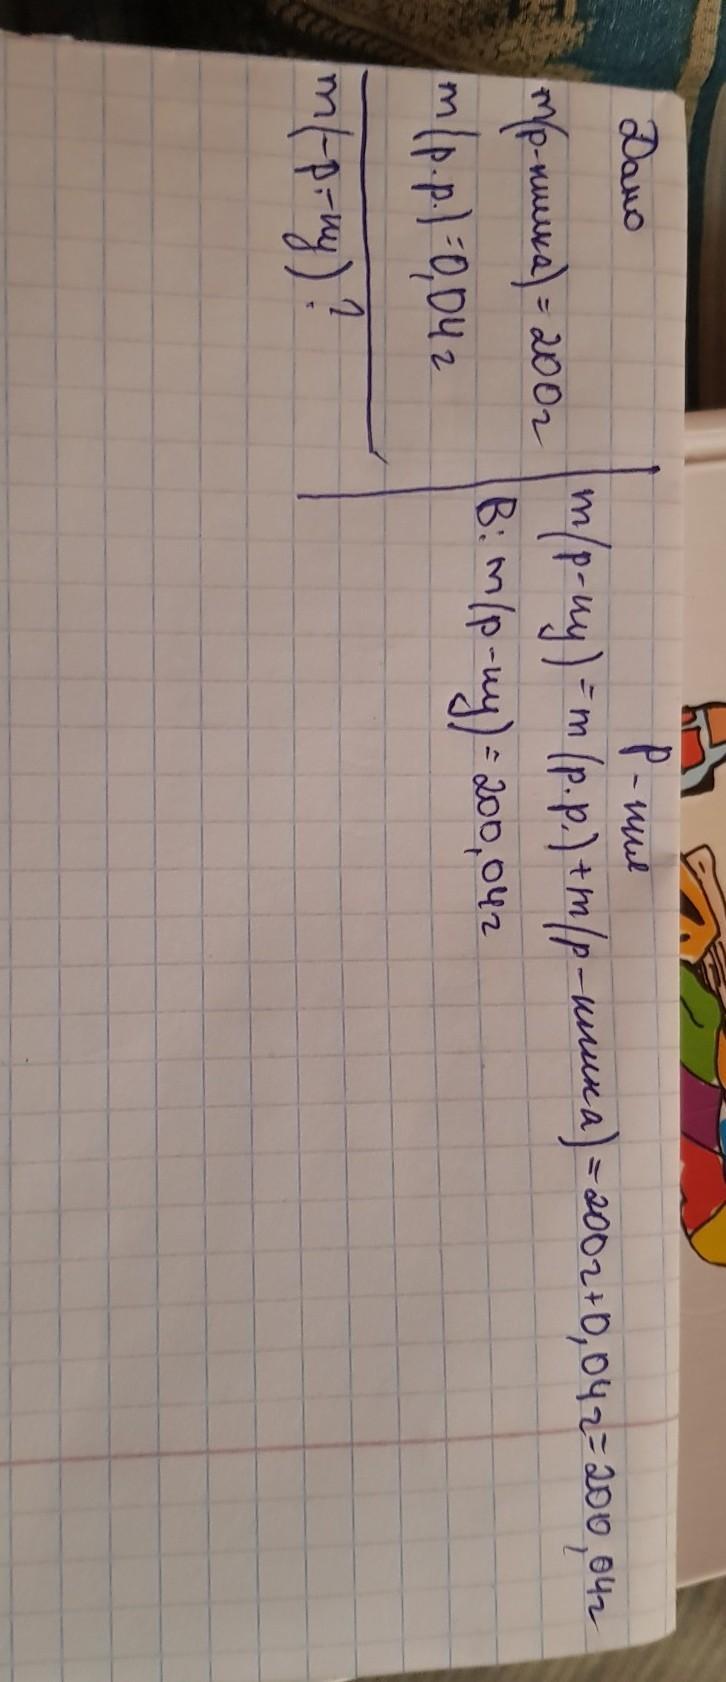 Дано
m(р-ника) = 200г
m(р.р.) = 0,04г
m(-р.-ну)?
р-ння
m(р-ну) = m(р.р.) + m(р-ника) = 200г + 0,04г = 200,04г
В: m(р-ну) = 200,04г